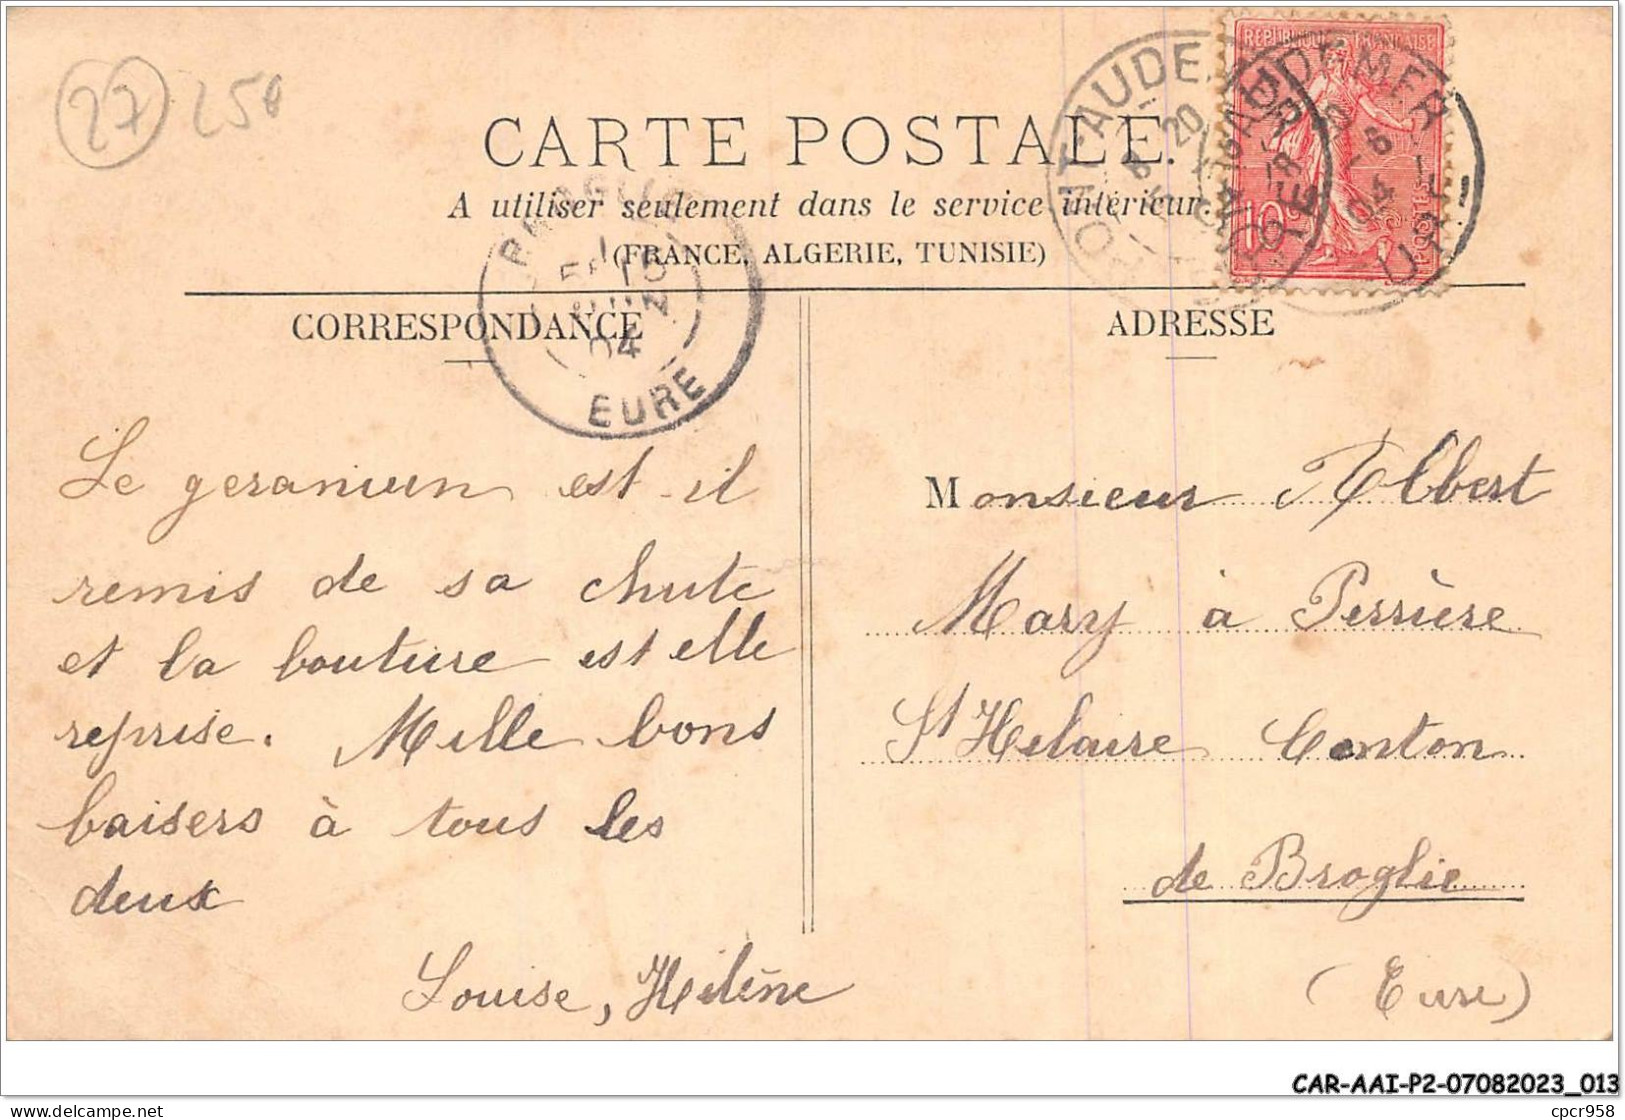 27 250
CARTE POSTALE.
A utiliser seulement dans le service intérieur.
(FRANCE, ALGERIE, TUNISIE)
REPUBLIQUE FRANÇAISE
10
POSTES
PONT-AUDEMER
EURE
04
EURE
04
CORRESPONDANCE
ADRESSE
Le geranium est-il
remis de sa chute
et la bouture est elle
reprise. Mille bons
baisers à tous les
deux
Louise, Hélène
Monsieur Albert
Mary à Perrière
St Helaire Canton
de Broglie
(Eure)
CAR-AAI-P2-07082023_013
delcampe.net
cpcr958